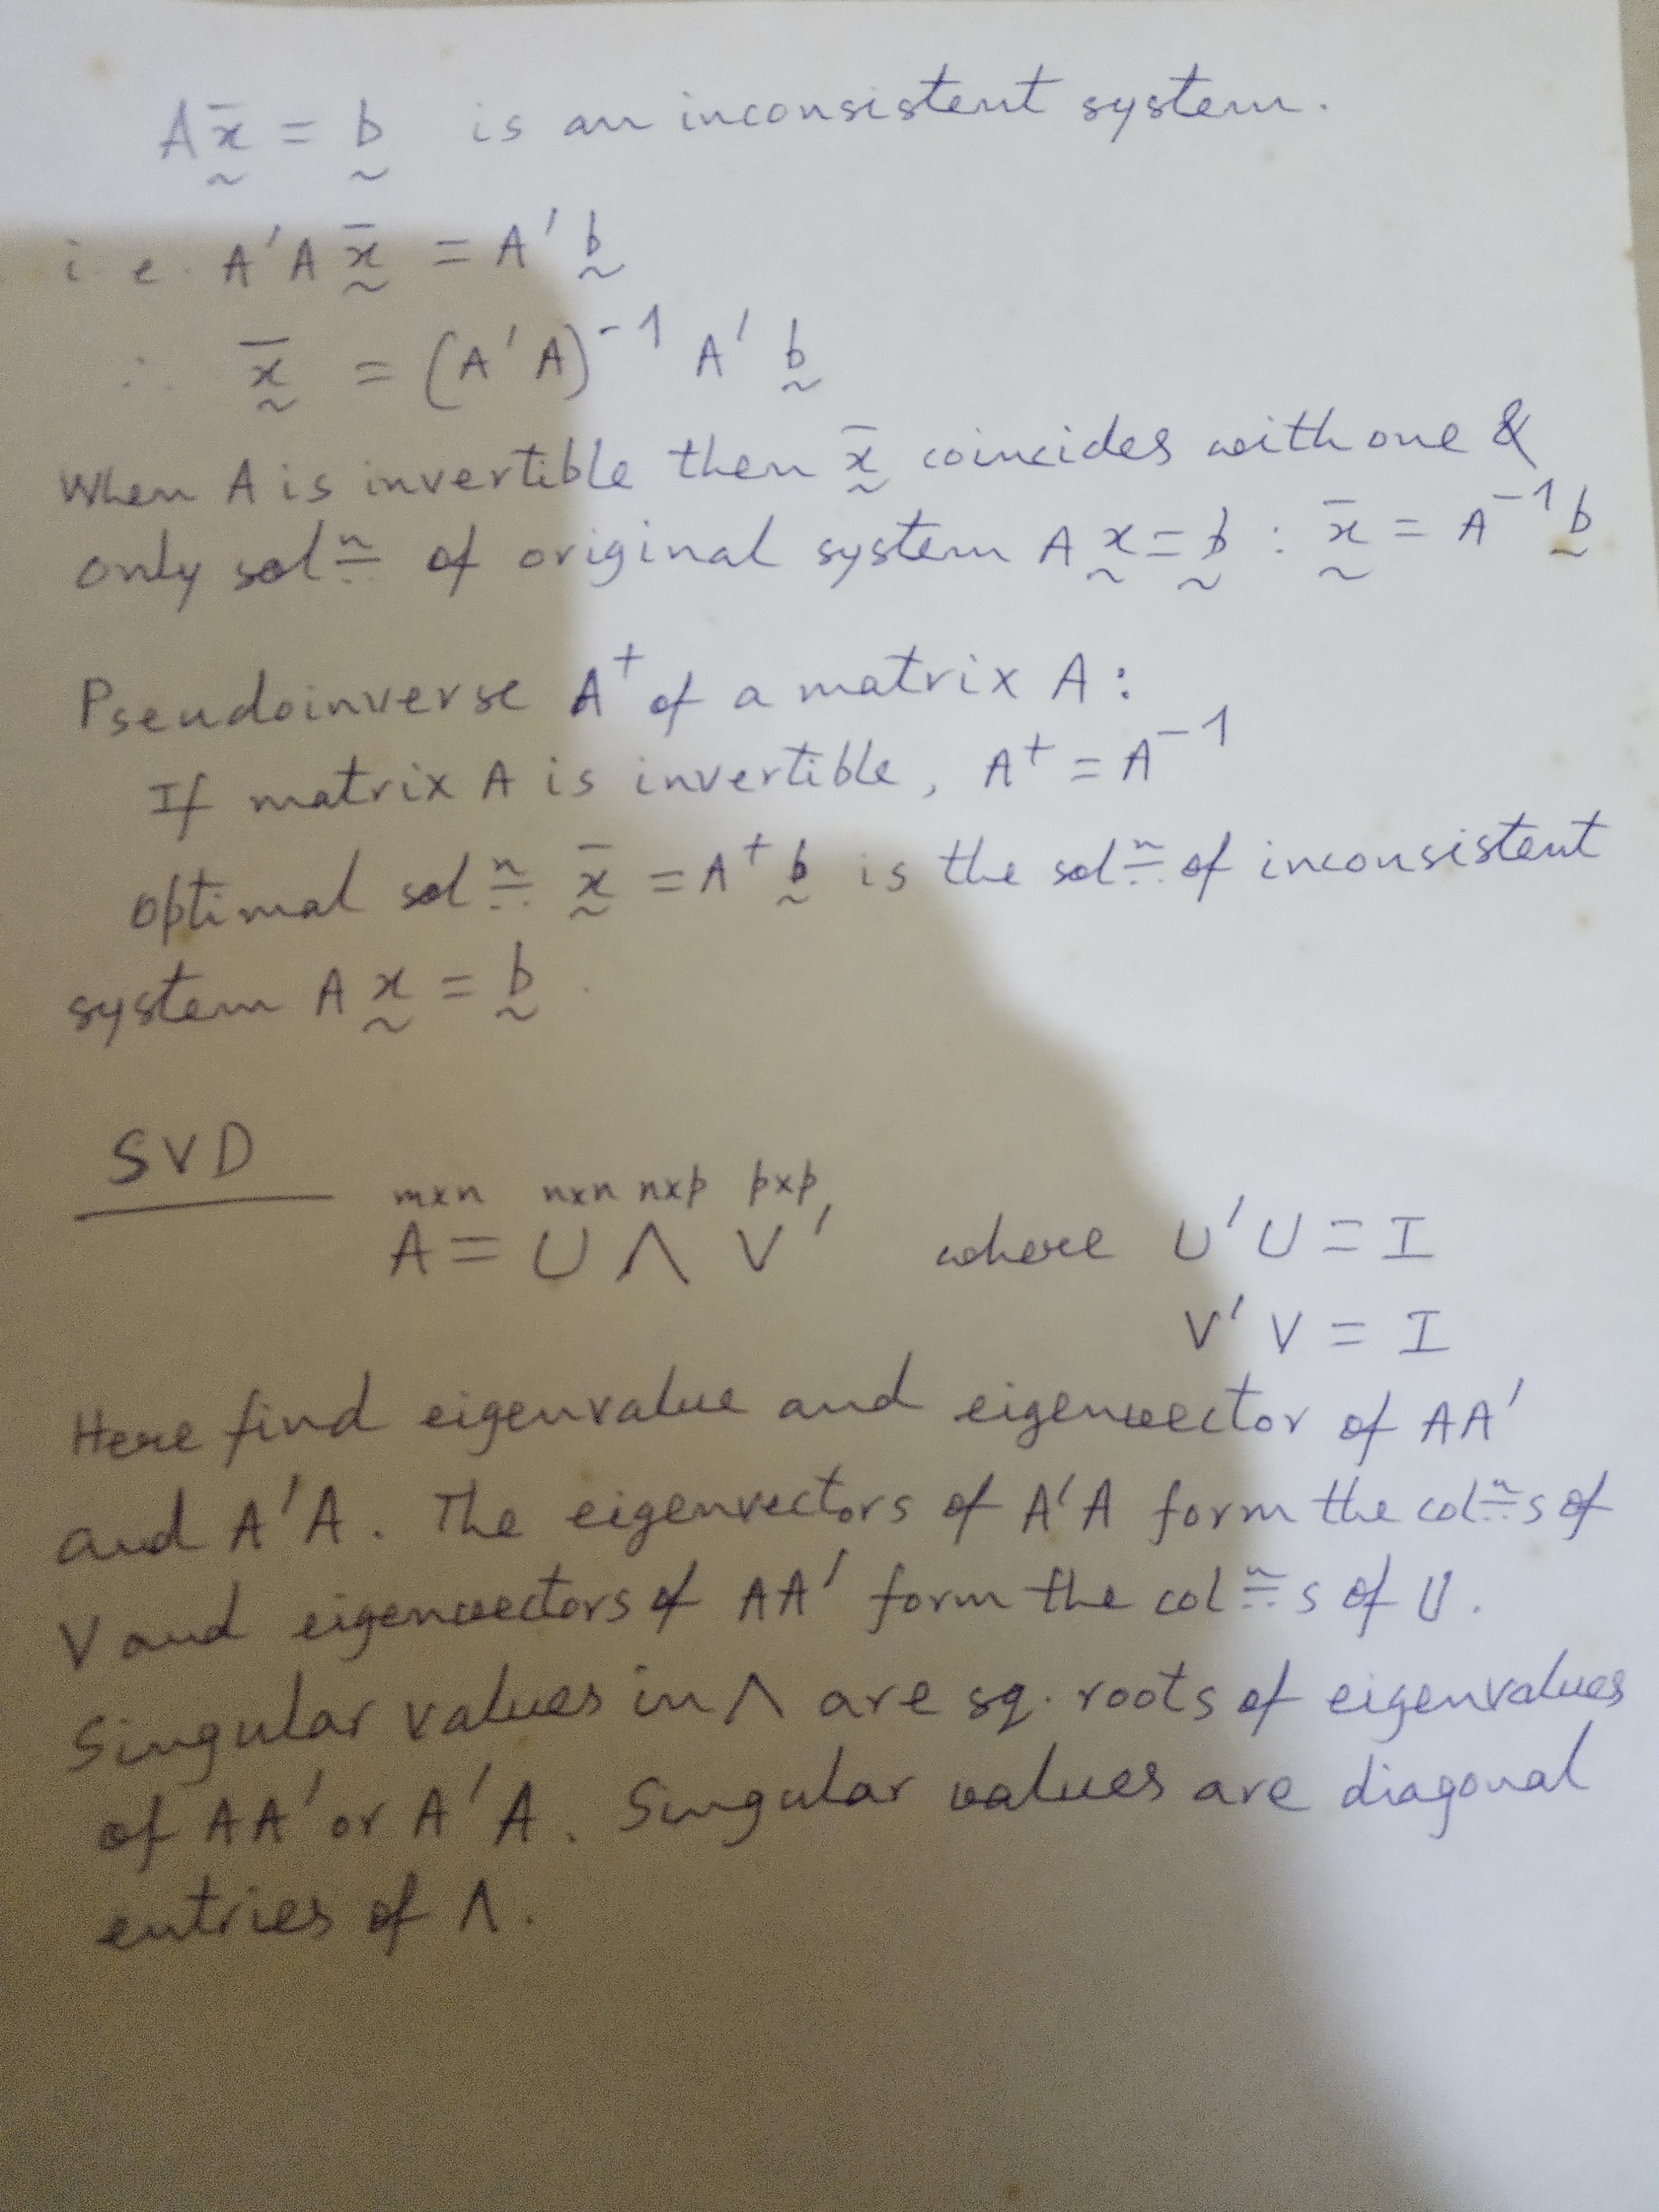 A x̄ = b is an inconsistent system.
i.e. A'A x̄ = A' b
∴ x̄ = (A'A)⁻¹ A' b
When A is invertible then x̄ coincides with one &
only solⁿ of original system A x = b : x̄ = A⁻¹ b
Pseudoinverse A⁺ of a matrix A :
If matrix A is invertible, A⁺ = A⁻¹
optimal solⁿ x̄ = A⁺ b is the solⁿ of inconsistent
system A x = b .
SVD
m×n n×n n×p p×p
A = U Λ V' where U'U = I
V'V = I
Here find eigenvalue and eigenvector of AA'
and A'A. The eigenvectors of A'A form the colⁿs of
V and eigenvectors of AA' form the colⁿs of U.
Singular values in Λ are sq. roots of eigenvalues
of AA' or A'A. Singular values are diagonal
entries of Λ.